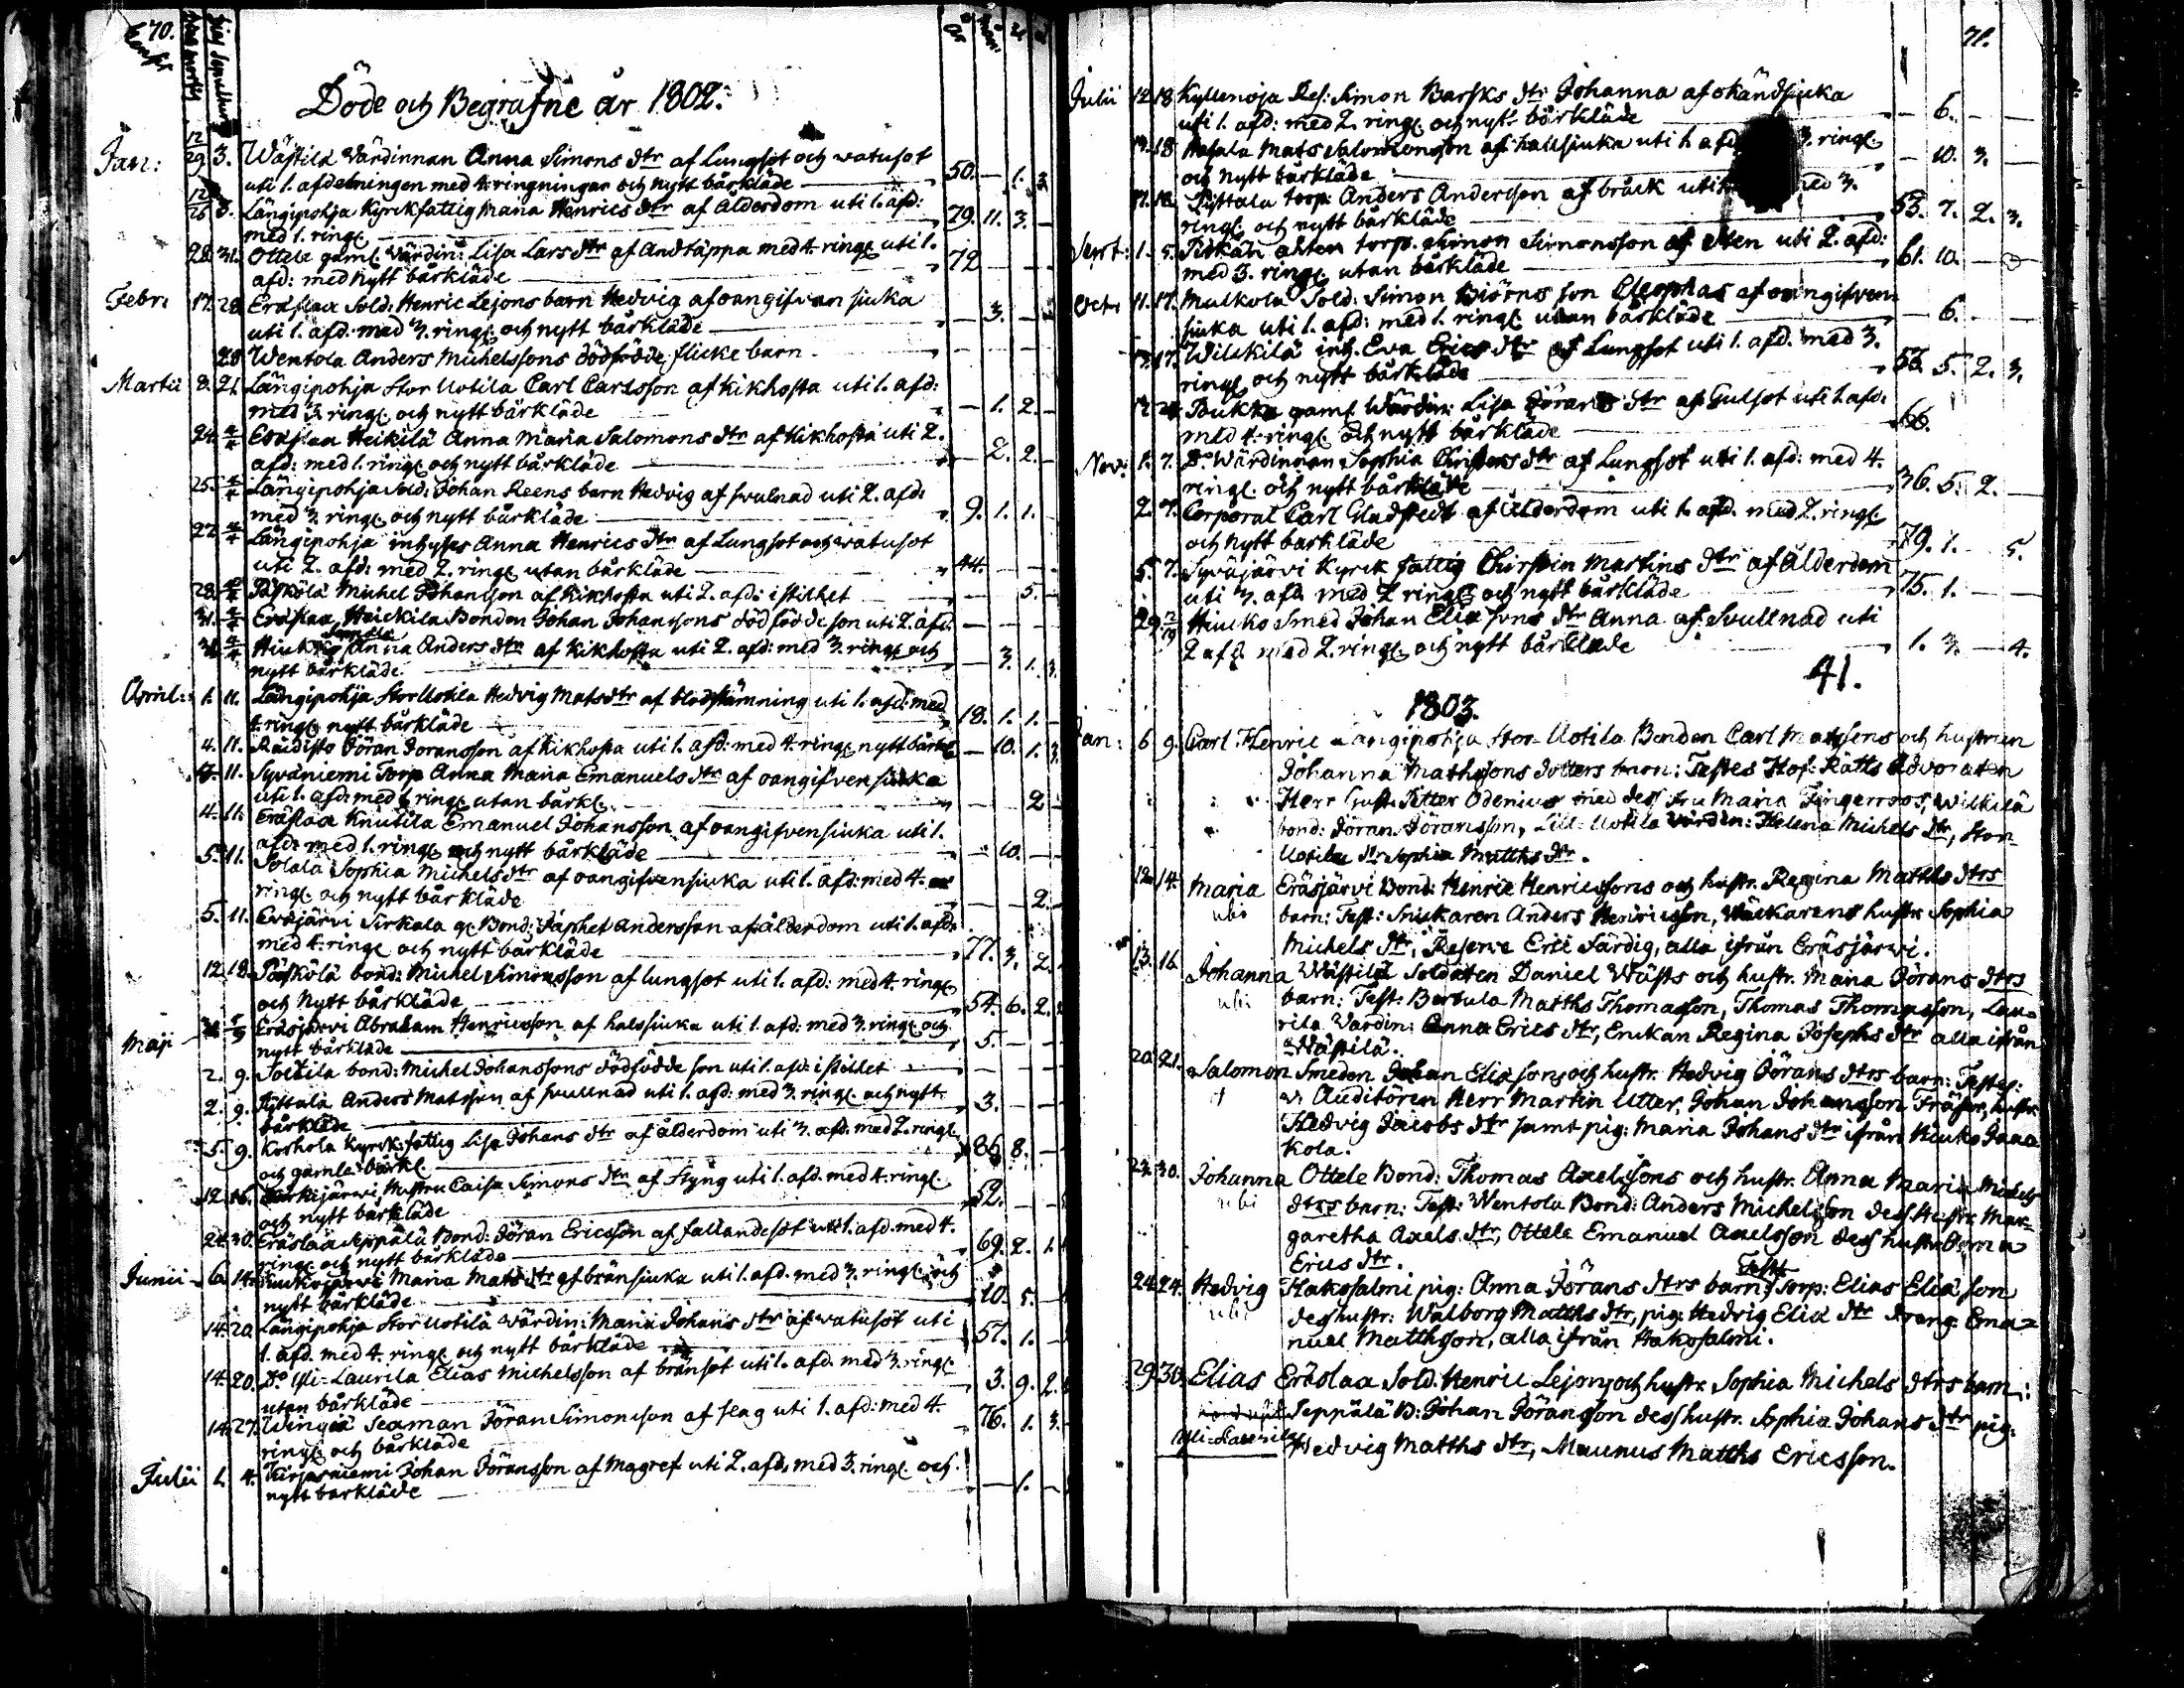 70.
Döde och Begrafne år 1802:
Jan: 12/29 3. Wästilä Wärdinnan Anna Simons dtr af Lungsot och watusot
uti 1. afdelningen med 4. ringningar och nytt bårkläde 50. — 1. 3
Längipohja Kyrckfattig Maria Henrics dtr af Ålderdom uti 1. afd:
med 1. ringl. 79. 11. 3. —
28. 31. Ottele gaml. Wärdin: Lisa Lars dtr af Andtäppa med 4. ringl uti 1.
afd: med nytt bårkläde 72
Febr: 17. 28. Eräslax Sold: Henric Lejons barn Hedvig af oangifvan siuka
uti 1. afd. med 3. ringl. och nytt bårkläde — 3. —
28 Wentola Anders Michelssons dödfödde flicke barn
Martii 8. 21. Längipohja Stor Uotila Carl Carlsson af Kikhosta uti 1. afd:
med 3 ringl. och nytt bårkläde — 1. 2. —
24. Eräslaa Heikilä Anna Maria Salomons dtr af Kikhosta uti 2.
afd: med 1. ringl och nytt bårkläde — 2. 2. —
25. Längipohja Sold: Johan Reens barn Hedvig af svulnad uti 2. afd:
med 3. ringl och nytt bårkläde 9. 1. 1.
27 Längipohja inhyses Anna Henrics dtr af Lungsot och watusot
uti 2. afd: med 2. ringl utan bårkläde 44. —
28. Päskölä Michel Johansson af Kikhosta uti 2. afd: i stilhet — 5. —
31. Eräslaa Heickilä Bonden Johan Johanssons död födde son uti 2. afd.
Anna Anders dtr af Kikhosta uti 2. afd: med 3. ringl och
nytt bårkläde — 3. 1. 3.
April: 1. 11. Längipohja Stor Uotila Hedvig Mats dtr af blodstämning uti 1. afd: med
4. ringl nytt bårkläde 18. 1. 1. —
4. 11. Räidisto Jöran Joransson af Kikhosta uti 1. afd: med 4. ringl nytt bårkl — 10. 1. 3
11. Syväniemi Torp Anna Maria Emanuels dtr af oangifven siuka
uti 1. afd: med ringl utan bårkl. — 2
4. 11. Eräslaa Knutila Emanuel Johansson af oangifven siuka uti 1.
afd: med 1. ringl och nytt bårkläde — 10. —
5. 11. Solala Sophia Michels dtr af oangifven siuka uti 1. afd: med 4.
ringl och nytt bårkläde — 2.
5. 11. Eräjärvi Sirkala gl Bond: Japhet Andersson af ålderdom uti 1. afd:
med 4. ringl och nytt bårkläde 77. 3. 2.
12. 18. Päskölä bond: Michel Simonsson af lungsot uti 1. afd: med 4. ringl
och nytt bårkläde 54. 6. 2.
Maji Eräsjärvi Abraham Henricsson af halssiuka uti 1. afd: med 3. ringl och
nytt bårkläde 5. —
2. 9. Soltila bond: Michel Johanssons dödfödde son uti 1. afd. i stillet
2. 9. Pyttälä Anders Matsson af svullnad uti 1. afd: med 3. ringl. och nytt
bårkläde 3. —
5. 9. Korhola Kyrck:fattig Lisa Johans dtr af ålderdom uti 3. afd. med 2. ringl.
och gamla bårkl. 86. 8. —
12. 16. Hustru Caisa Simons dtr af Styng uti 1. afd. med 4. ringl.
och nytt bårkläde 52.
24. 30. Eräslaa Seppälä Bond: Jöran Ericsson af fallandesot uti 1. afd. med 4.
ringl och nytt bårkläde 69. 2. 1.
Junii 6. 14. Maria Mats dtr af bränsiuka uti 1. afd. med 3. ringl. och
nytt bårkläde 10. 5.
14. 20. Längipohja Stor Uotilä wärdin: Maria Johans dtr af watusot uti
1. afd. med 4. ringl och nytt bårkläde 57. 1.
14. 20. Do Yli-Laurila Elias Michelsson af bränsot uti 1. afd. med 3. ringl.
utan bårkläde 3. 9. 2.
14. 27. Wingiä Seaman Jöran Simonsson af slag uti 1. afd: med 4.
ringl och bårkläde 76. 1. 3.
Julii 1. 4. Kirjasniemi Johan Jöransson af Magref uti 2. afd, med 3. ringl. och
nytt barkläde — 1. —
71.
Julii 12. 18. Kyllenoja Res: Simon Barsks dtr Johanna af okänd siuka
uti 1. afd: med 2. ringl och nytt bårkläde — 6. —
18 Mats Salomonsson af halssiuka uti 1. afd 3. ringl.
och nytt bårkläde — 10. 3. —
17. 18. Pyttälä torp: Anders Andersson af bråck uti med 3.
ringl. och nytt bårkläde 53. 7. 2. 3.
Sept: 1. 5. torp. Simon Simonsson af sten uti 2. afd:
med 3. ringl. utan bårkläde 61. 10. —
Octr 11. 17. Mulkola Sold: Simon Biörns son Cleophas af oangifven
siuka uti 1. afd: med 1. ringl utan bårkläde — 6. —
17. Wilckilä inh. Eva Erics dtr af Lungsot uti 1. afd. med 3.
ringl och nytt bårkläde 53. 5. 2. 3.
24 Pukka gaml. Wärdin: Lisa Jörans dtr af Gulsot uti 1. afd.
med 4. ringl. och nytt bårkläde 66.
Nov: 1. 7. Do Wärdinnan Sophia Christers dtr af Lungsot uti 1. afd: med 4.
ringl. och nytt bårkläde 36. 5. 2. —
2. 7. Corporal Carl Gladstedt af Ålderdom uti 1. afd. med 2. ringl
och nytt barkläde 79. 1. 5.
5. 7. Syväjärvi Kyrck fattig Chirstin Martins dtr af Ålderdom
uti 3. afd. med 2 ringl och nytt bårkläde 75. 1. —
29 12/19 Hiucko Smed Johan Elia sons dtr Anna af Svullnad uti
2 afd. med 2. ringl. och nytt bårkläde 1. 3. — 4.
41.
1803.
Jan: 6 9. Carl Henric Längipohja Stor-Uotila Bonden Carl Matssons och hustrun
Johanna Mathssons dotters barn: Testes Hof-Rätts Advocaten
Herr Gust. Petter Odenius med dess fru Maria Fingerroos, Wilkilä
bond: Jöran Jöransson, Lill-Uotila wärdin: Helena Michels dtr, Stor
Uotila dtr Sophia Matths dtr.
12. 14. Maria Eräsjärvi Bond: Henric Henricssons och hustr. Regina Matths dtrs
ubi barn: Test: Snickaren Anders Henricsson, hustr Sophia
Michels dtr, Reserve Eric Färdig, alla ifrån Eräsjärvi.
13. 16. Johanna Wästilä Soldaten Daniel Wästs och hustr. Maria Jörans dtrs
ubi barn: Test: Bertula Matths Thomasson, Thomas Thomasson, Lau-
rila Wärdin: Anna Erics dtr, Enckan Regina Josephs dtr alla ifrån
Wästilä.
20. 21. Salomon Smeden Johan Elia sons och hustr. Hedvig Jörans dtrs barn: Testes:
Auditören Herr Martin Utter, Johan Johansson hustr
Hedvig Jacobs dtr samt pig: Maria Johans dtr ifrån Hiucko Jaac
kola.
30. Johanna Ottele Bond: Thomas Axelssons och hustr. Anna Maria Michels
ubi dtrs barn: Test: Wentola Bond: Anders Michelsson dess Hustr Mar-
garetha Axels dtr, Ottele Emanuel Axelsson dess hustr Anna
Erics dtr.
24. 24. Hedvig Hakosalmi pig: Anna Jörans dtrs barn: Test Torp: Elias Elia son
ubi dess hustr: Walborg Matths dtr, pig: Hedvig Elia dtr Dräng: Ema-
nuel Matthsson, alla ifrån Hakosalmi.
29. 30. Elias Eräslaa Sold. Henric Lejons och hustr. Sophia Michels dtrs barn:
Seppälä B: Johan Jöransson dess hustr. Sophia Johans dtr pig:
Yli-Laurila Hedvig Matths dtr, Maunus Matths Ericsson.